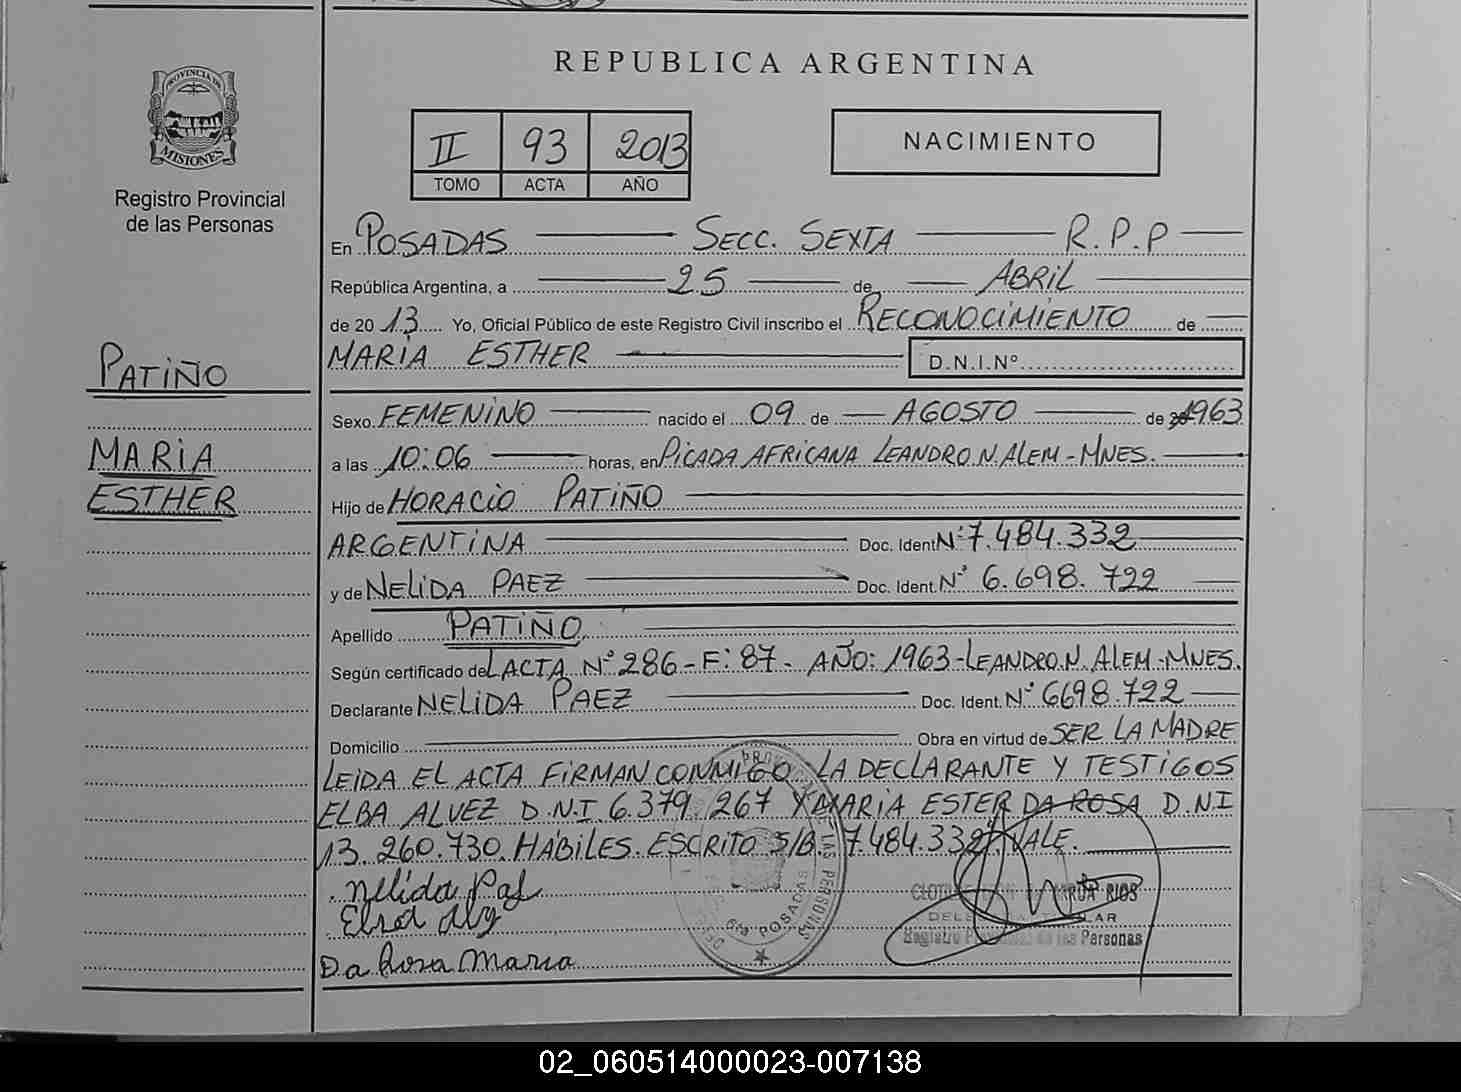 REPUBLICA ARGENTINA
PROVINCIA DE
MISIONES
Registro Provincial
de las Personas
II 93 2013
TOMO ACTA AÑO
NACIMIENTO
PATIÑO
MARIA
ESTHER
En POSADAS SECC. SEXTA R.P.P
República Argentina, a 25 de ABRIL
de 20 13 Yo, Oficial Público de este Registro Civil inscribo el RECONOCIMIENTO de
MARIA ESTHER D.N.I.Nº
Sexo FEMENINO nacido el 09 de AGOSTO de 1963
a las 10:06 horas, en PICADA AFRICANA LEANDRO.N.ALEM-MNES.
Hijo de HORACIO PATIÑO
ARGENTINA Doc. Ident Nº 7.484.332
y de NELIDA PAEZ Doc. Ident. Nº 6.698.722
Apellido PATIÑO
Según certificado del ACTA Nº 286-F:87- AÑO: 1963-LEANDRO.N.ALEM-MNES.
Declarante NELIDA PAEZ Doc. Ident. Nº 6698.722
Domicilio Obra en virtud de SER LA MADRE
LEIDA EL ACTA FIRMAN CONMIGO LA DECLARANTE Y TESTIGOS
ELBA ALVEZ D.N.I 6.379.267 Y MARIA ESTER DA ROSA D.N.I
13.260.730. HÁBILES. ESCRITO S/B "7.484.332" VALE.
Nelida
Da Rosa Maria
LAS PERSONAS
6ta POSADAS
RIOS
Registro Provincial de las Personas
02_060514000023-007138